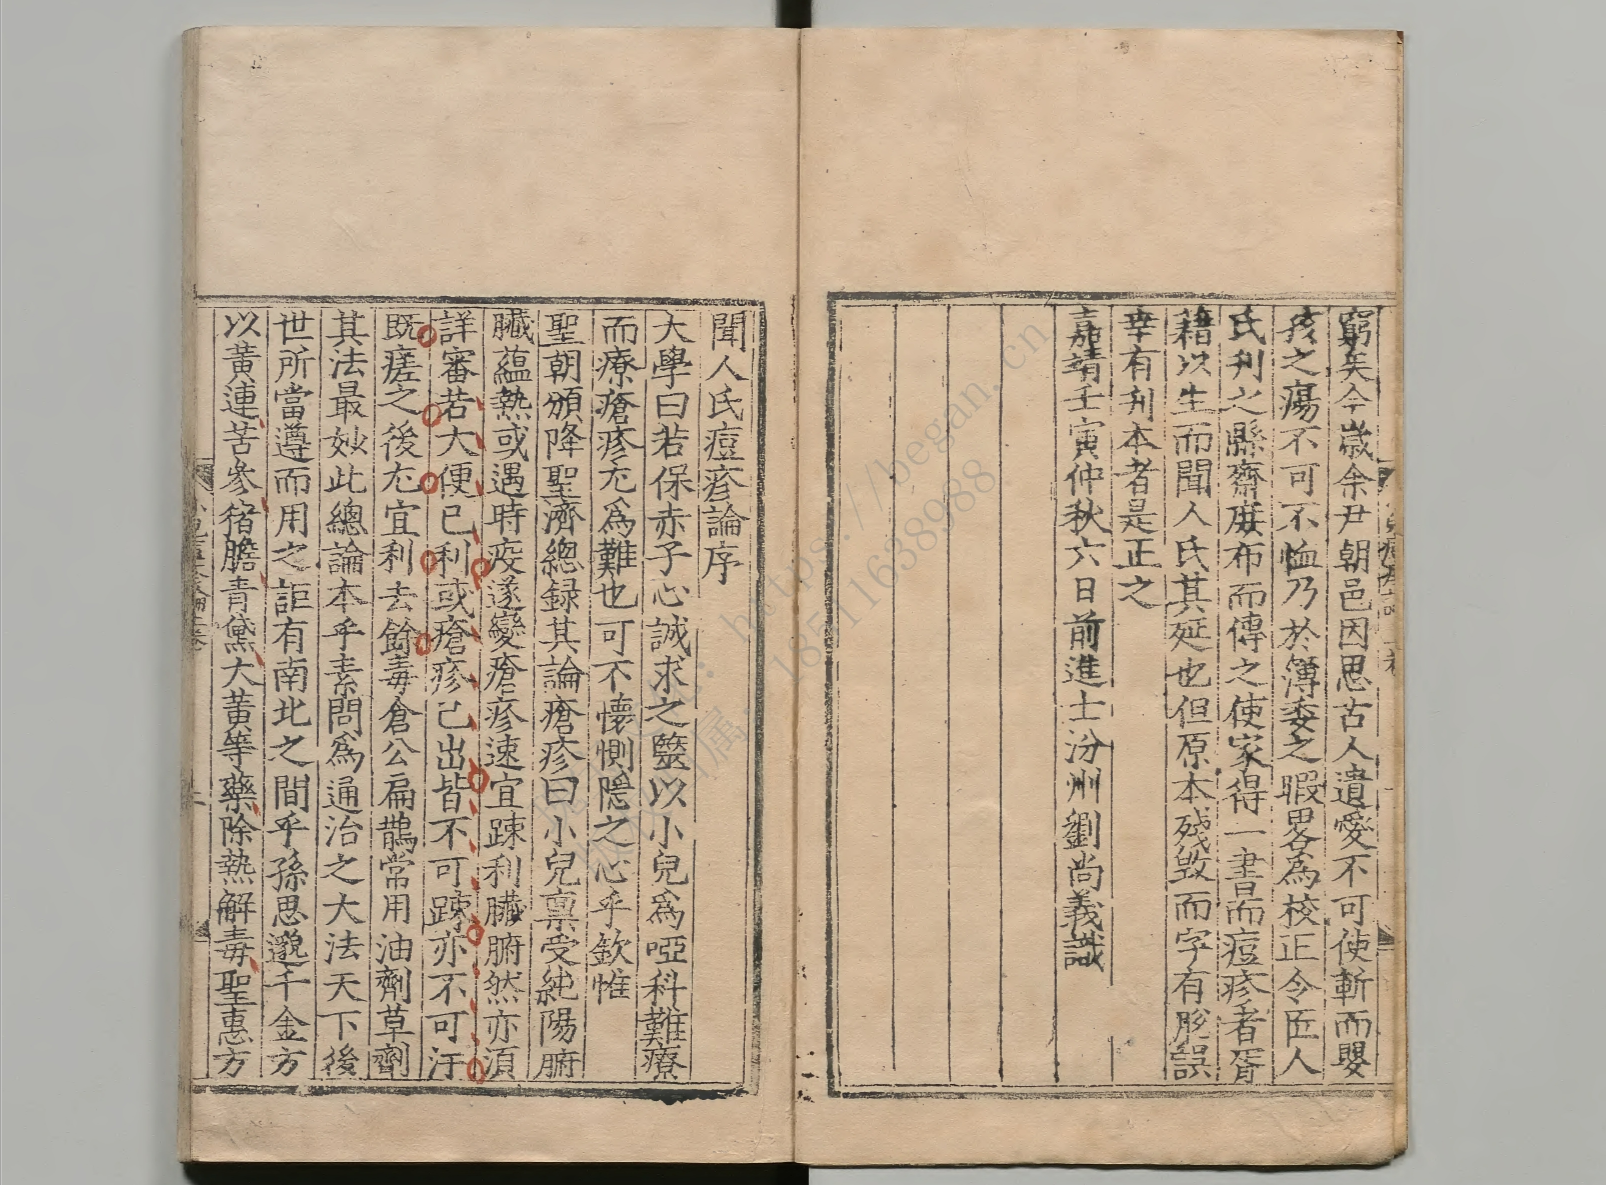 窮矣今歲余尹朝邑因思古人遺愛不可使斬而嬰
孩之瘍不可不恤乃於簿委之暇畧為校正令匠人
氏刋之縣齋廣布而傳之使家得一書而痘疹者胥
藉以生而聞人氏其延也但原本殘毀而字有脱誤
幸有刋本者是正之
嘉靖壬寅仲秋六日前進士汾州劉尚義識
聞人氏痘疹論序
大學曰若保赤子心誠求之毉以小兒爲啞科難療
而療瘡疹尤爲難也可不懷惻隠之心乎欽惟
聖朝頒降聖濟總録其論瘡疹曰小兒禀受純陽腑
臟蘊熱或遇時疫遂變瘡疹速宜踈利臟腑然亦須
詳審若大便已利或瘡疹已出皆不可踈亦不可汗
既瘥之後尤宜利去餘毒倉公扁鵲常用油劑草劑
其法最妙此總論本乎素問爲通治之大法天下後
世所當遵而用之詎有南北之間乎孫思邈千金方
以黃連苦參猪膽青黛大黃等藥除熱解毒聖惠方
https://began.cn
18511638988